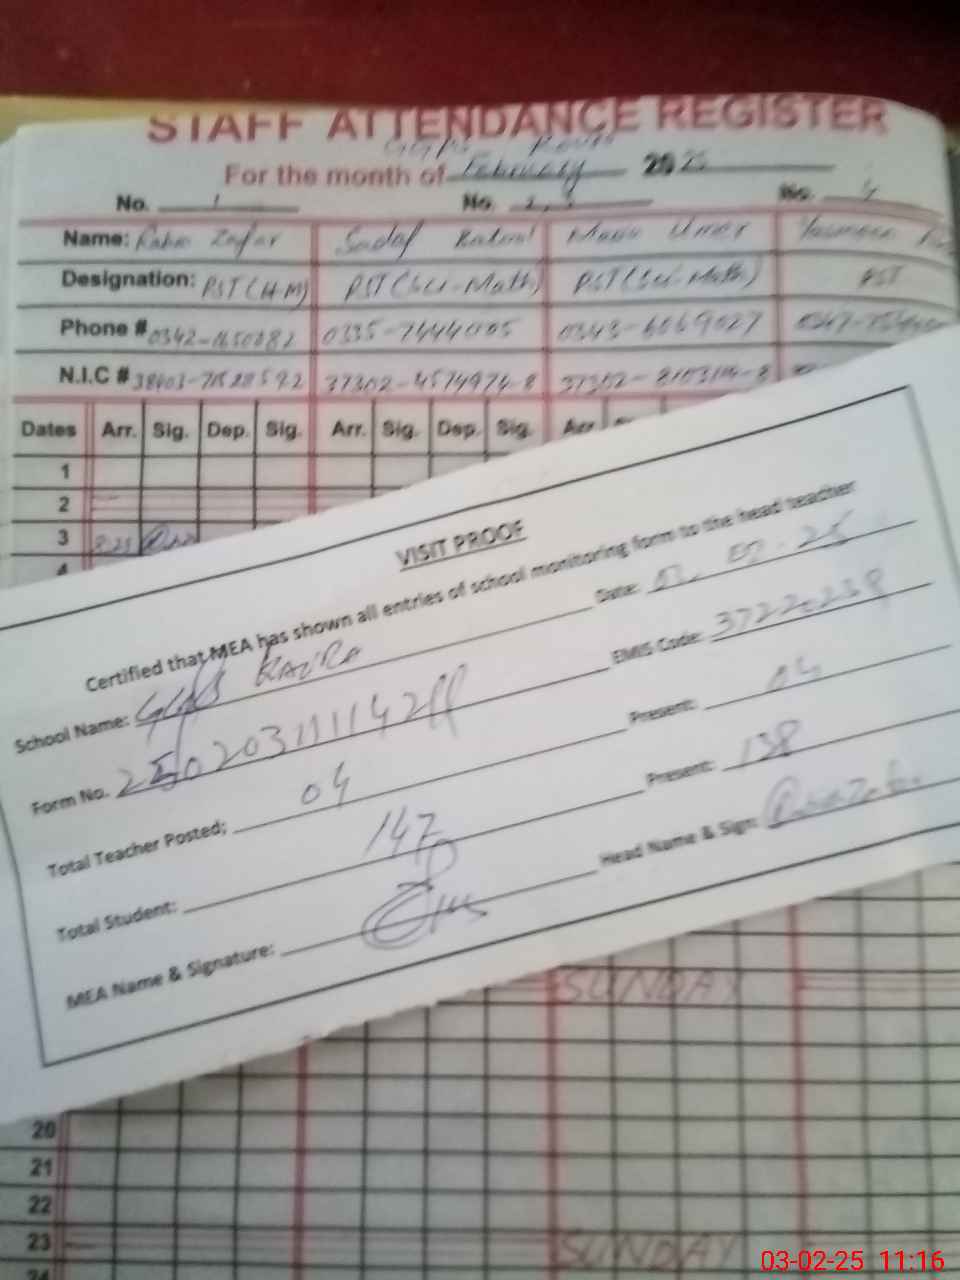 STAFF ATTENDANCE REGISTER
GGPS
For the month of February 2025
No. 1 No. 2, 3 No. 4
Name: Zafar Sadaf Umer
Designation: PST (H-M) PST (Sci-Math) PST (Sci-Math) PST
Phone # 0335-7444005 0343-6069027
N.I.C # 37302-4574974-8
Dates Arr. Sig. Dep. Sig. Arr. Sig. Dep. Sig. Arr
1
2
3 8:25
4
VISIT PROOF
Certified that MEA has shown all entries of school monitoring form to the head teacher
School Name: GGPS Date: 03. 02. 25
Form No. EMIS Code: 37220238
Total Teacher Posted; 04 Present: 04
Total Student: 147 Present: 138
MEA Name & Signature: Head Name & Sign:
SUNDAY
20
21
22
23 SUNDAY
24
03-02-25 11:16